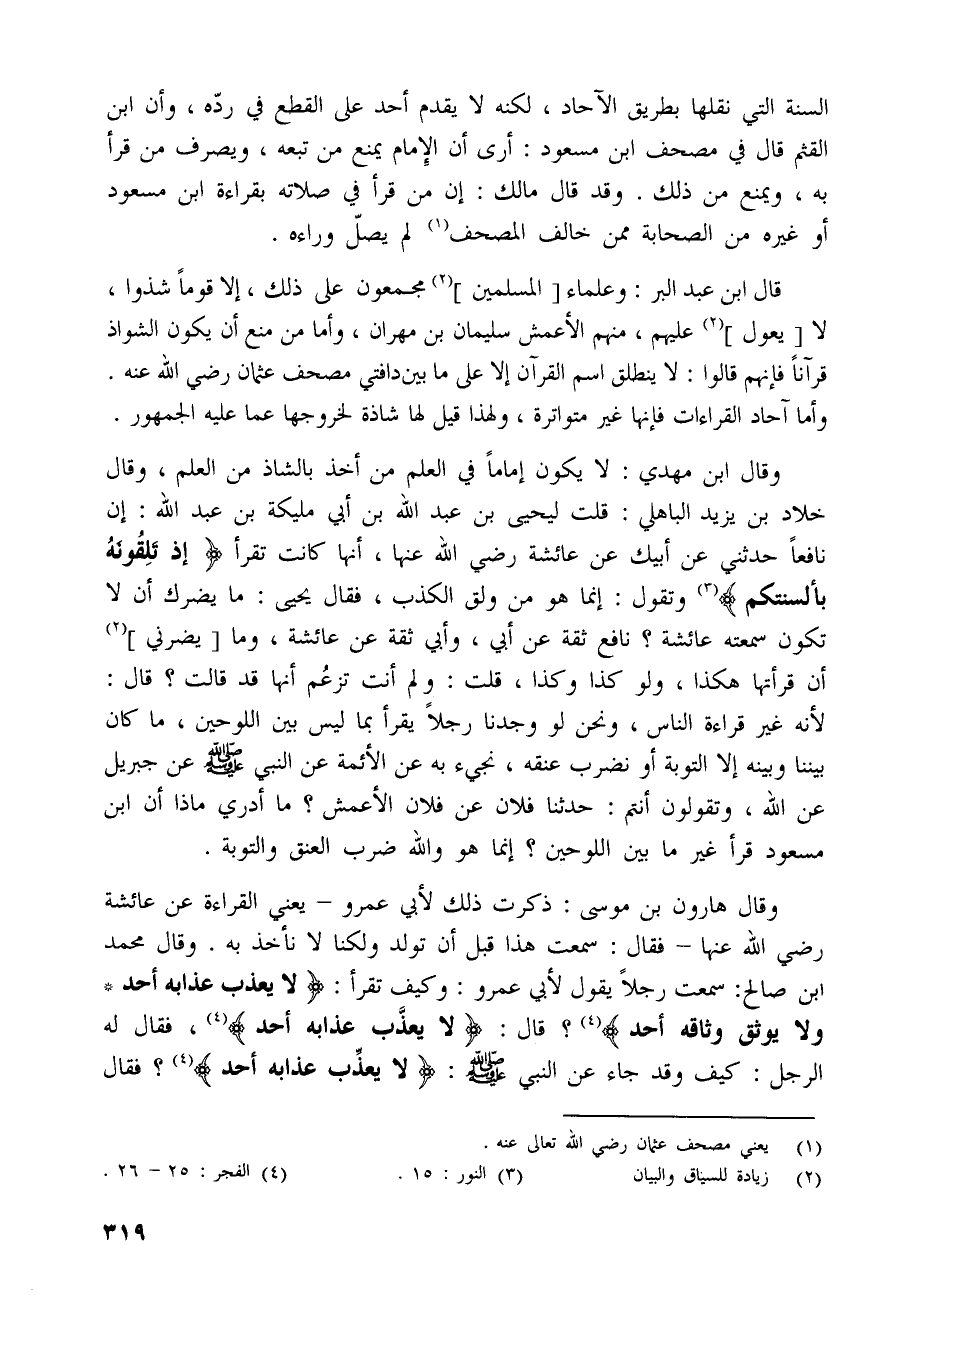 السنة التي نقلها بطريق الآحاد ، لكنه لا يقدم أحد على القطع في ردّه ، وأن ابن
القثم قال في مصحف ابن مسعود : أرى أن الإمام يمنع من تبعه ، ويصرف من قرأ
به ، ويمنع من ذلك . وقد قال مالك : إن من قرأ في صلاته بقراءة ابن مسعود
أو غيره من الصحابة ممن خالف المصحف(١) لم يصلّ وراءه .
قال ابن عبد البر : وعلماء [ المسلمين ](٢) مجمعون على ذلك ، إلا قوماً شذوا ،
لا [ يعول ](٢) عليهم ، منهم الأعمش سليمان بن مهران ، وأما من منع أن يكون الشواذ
قرآناً فإنهم قالوا : لا ينطلق اسم القرآن إلا على ما بين دافتي مصحف عثمان رضي الله عنه .
وأما آحاد القراءات فإنها غير متواترة ، ولهذا قيل لها شاذة لخروجها عما عليه الجمهور .
وقال ابن مهدي : لا يكون إماماً في العلم من أخذ بالشاذ من العلم ، وقال
خلاد بن يزيد الباهلي : قلت ليحيى بن عبد الله بن أبي مليكة بن عبد الله : إن
نافعاً حدثني عن أبيك عن عائشة رضي الله عنها ، أنها كانت تقرأ ﴿ إذ تَلِقُونَهُ
بألسنتكم ﴾(٣) وتقول : إنما هو من ولق الكذب ، فقال يحيى : ما يضرك أن لا
تكون سمعته عائشة ؟ نافع ثقة عن أبي ، وأبي ثقة عن عائشة ، وما [ يضرني ](٢)
أن قرأتها هكذا ، ولو كذا وكذا ، قلت : ولم أنت تزعُم أنها قد قالت ؟ قال :
لأنه غير قراءة الناس ، ونحن لو وجدنا رجلاً يقرأ بما ليس بين اللوحين ، ما كان
بيننا وبينه إلا التوبة أو نضرب عنقه ، نجيء به عن الأئمة عن النبي ﷺ عن جبريل
عن الله ، وتقولون أنتم : حدثنا فلان عن فلان الأعمش ؟ ما أدري ماذا أن ابن
مسعود قرأ غير ما بين اللوحين ؟ إنما هو والله ضرب العنق والتوبة .
وقال هارون بن موسى : ذكرت ذلك لأبي عمرو – يعني القراءة عن عائشة
رضي الله عنها – فقال : سمعت هذا قبل أن تولد ولكنا لا نأخذ به . وقال محمد
ابن صالح : سمعت رجلاً يقول لأبي عمرو : وكيف تقرأ : ﴿ لا يعذب عذابه أحد *
ولا يوثق وثاقه أحد ﴾(٤) ؟ قال : ﴿ لا يعذَّب عذابه أحد ﴾(٤) ، فقال له
الرجل : كيف وقد جاء عن النبي ﷺ : ﴿ لا يعذِّب عذابه أحد ﴾(٤) ؟ فقال
(١) يعني مصحف عثمان رضي الله تعالى عنه .
(٢) زيادة للسياق والبيان (٣) النور : ١٥ . (٤) الفجر : ٢٥ – ٢٦ .
٣١٩